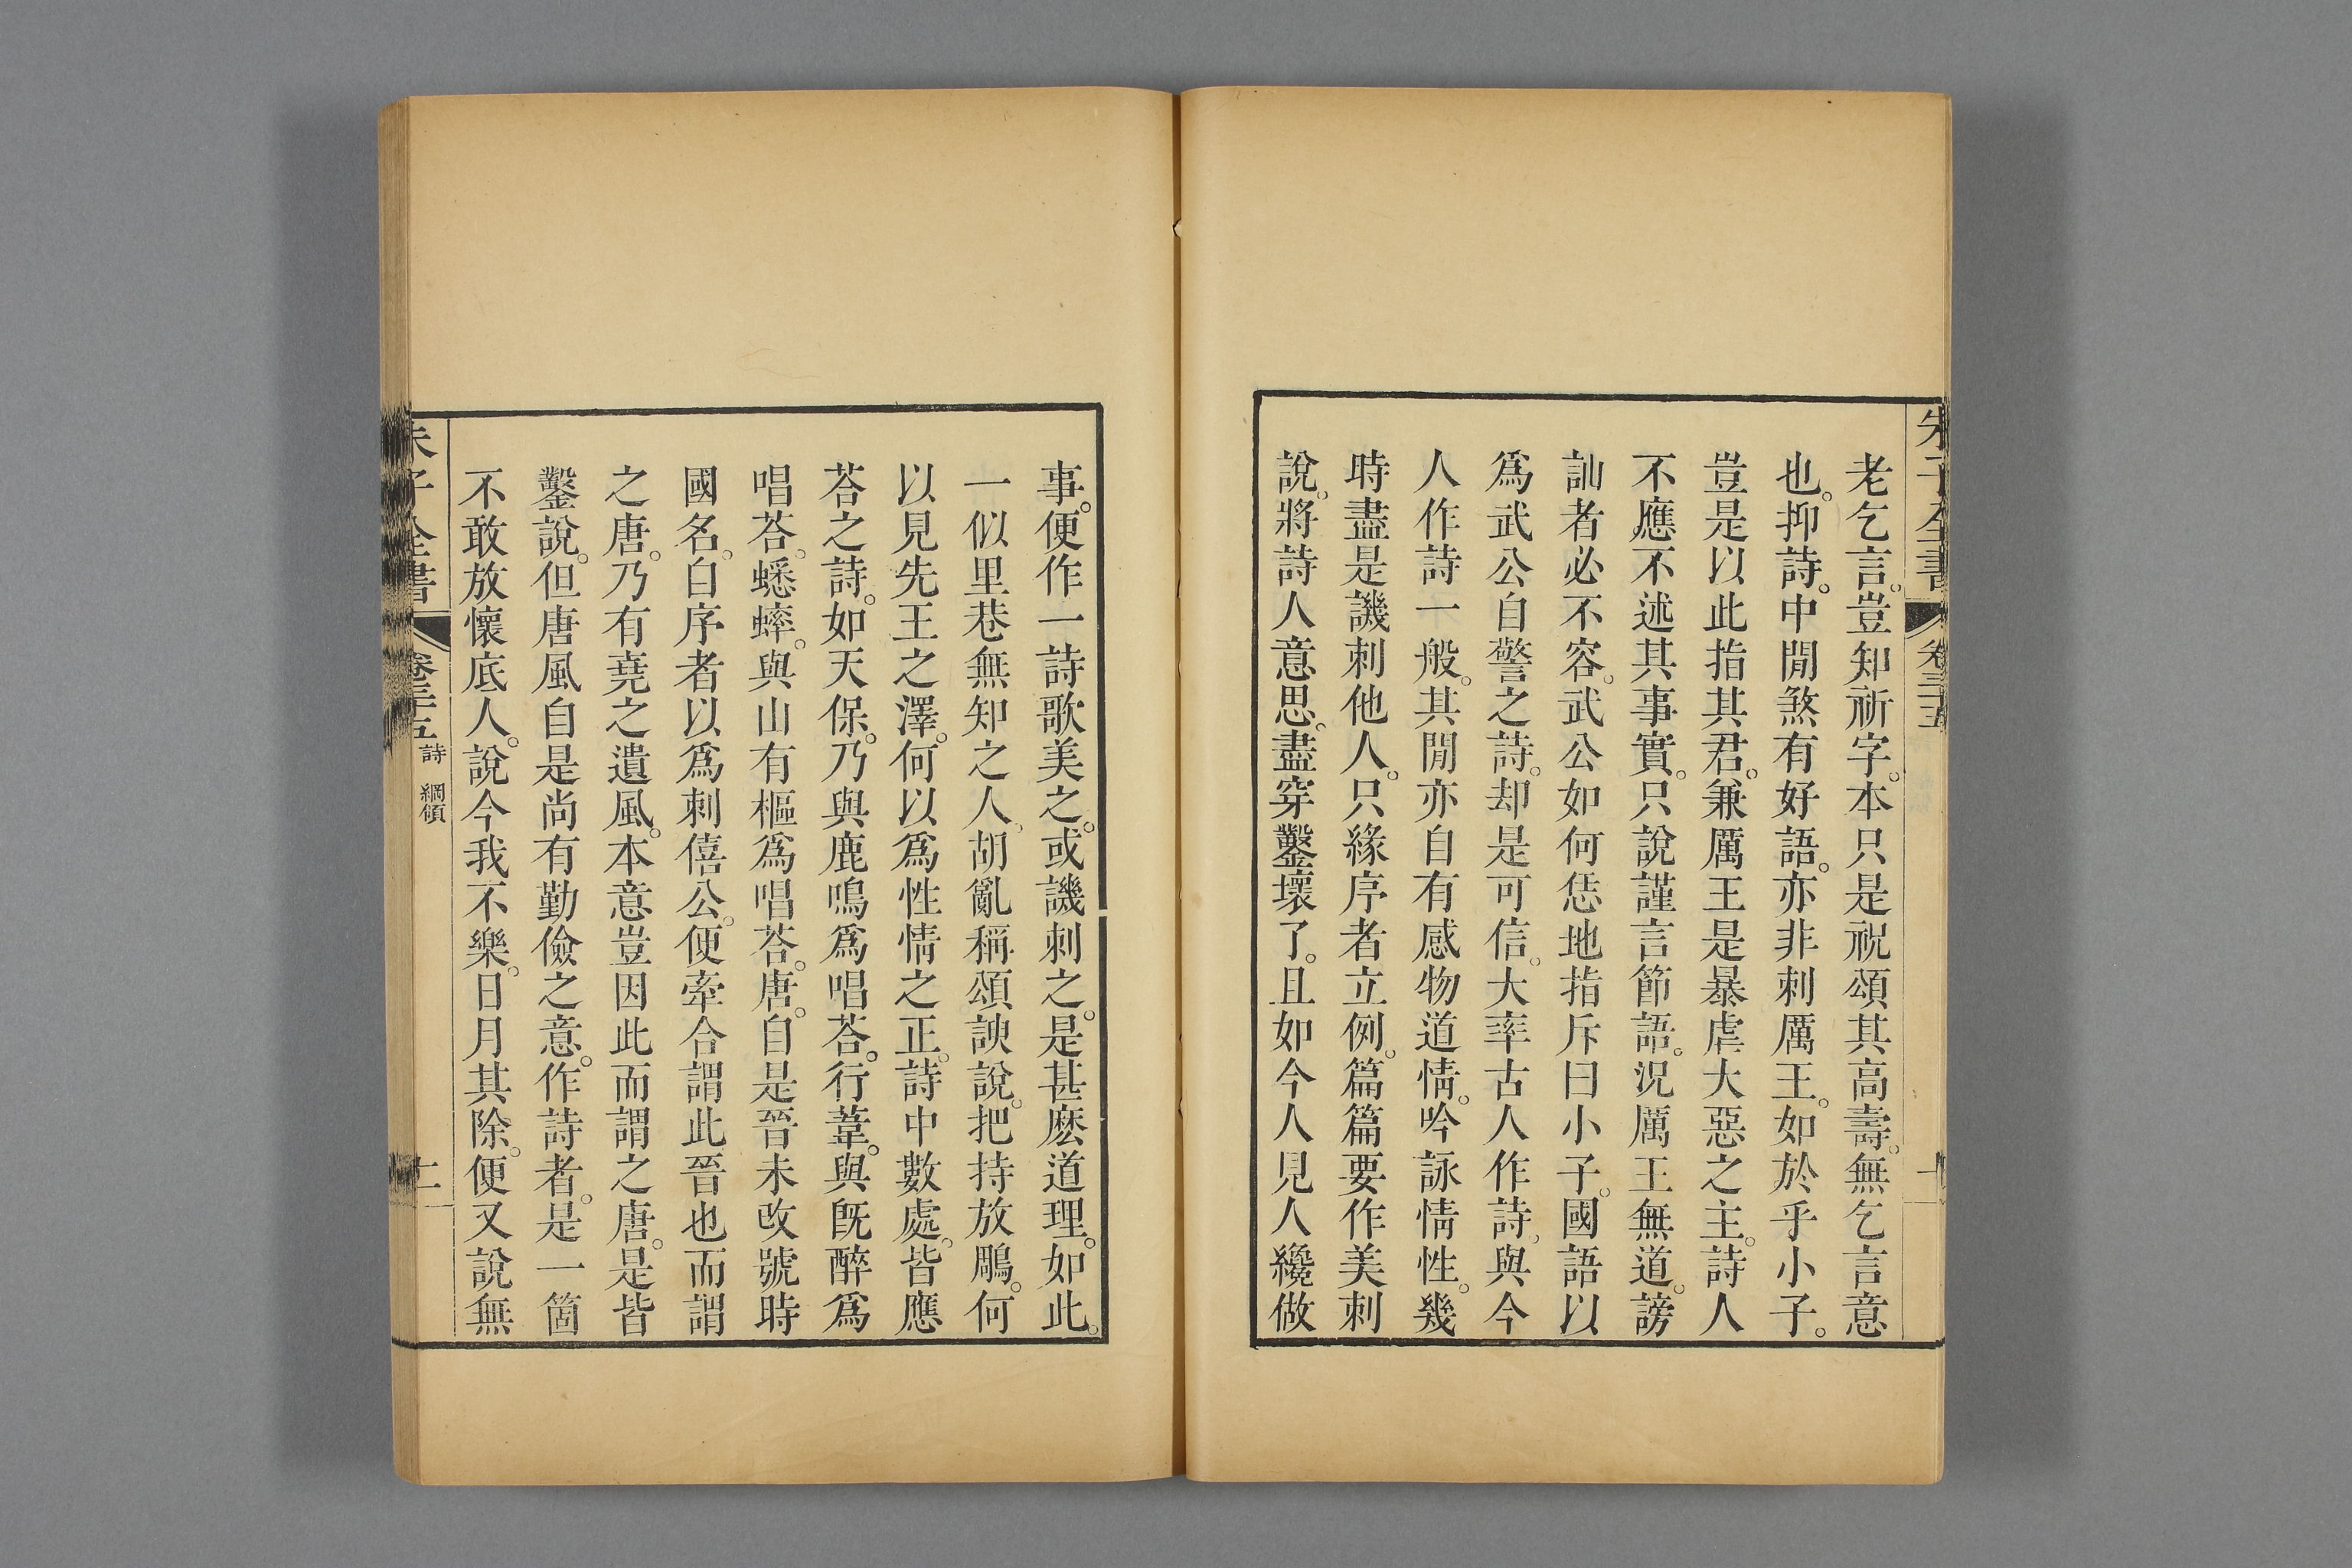 朱子全書 卷三十五
老乞言。豈知祈字。本只是祝頌其高壽。無乞言意
也。抑詩。中閒煞有好語。亦非刺厲王。如於乎小子。
豈是以此指其君。兼厲王是暴虐大惡之主。詩人
不應不述其事實。只說謹言節語。況厲王無道。謗
訕者必不容。武公如何恁地指斥曰小子。國語以
爲武公自警之詩。却是可信。大率古人作詩。與今
人作詩一般。其閒亦自有感物道情。吟詠情性。幾
時盡是譏刺他人。只緣序者立例。篇篇要作美刺
說。將詩人意思。盡穿鑿壞了。且如今人見人纔做
事。便作一詩歌美之。或譏刺之。是甚麽道理。如此。
一似里巷無知之人。胡亂稱頌諛說。把持放鵰。何
以見先王之澤。何以爲性情之正。詩中數處。皆應
荅之詩。如天保。乃與鹿鳴爲唱荅。行葦。與旣醉爲
唱荅。蟋蟀。與山有樞爲唱荅。唐。自是晉未改號時
國名。自序者以爲刺僖公。便牽合謂此晉也而謂
之唐。乃有堯之遺風。本意豈因此而謂之唐。是皆
鑿說。但唐風自是尚有勤儉之意。作詩者。是一箇
不敢放懷底人。說今我不樂。日月其除。便又說無
朱子全書 卷三十五 詩 綱領